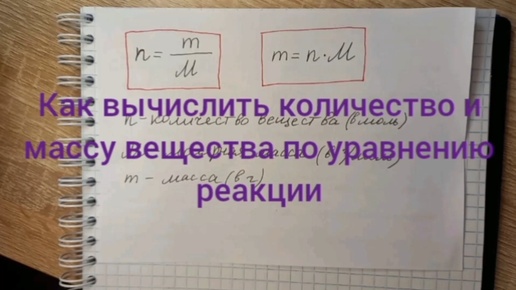 n = m/M
m = n · M
Как вычислить количество и
n - количество вещества (в моль)
массу вещества по уравнению
m - масса (в г)
реакции